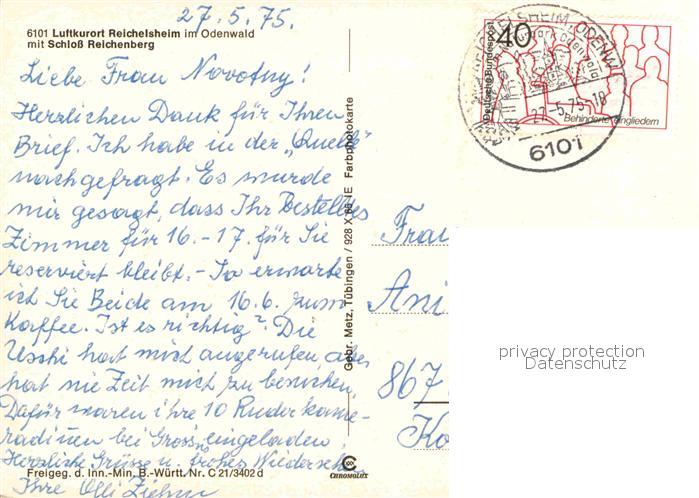 27.5.75.
6101 Luftkurort Reichelsheim im Odenwald
mit Schloß Reichenberg
Liebe Frau Novotny!
Herzlichen Dank für Ihren
Brief. Ich habe in der „Quelle"
nachgefragt. Es wurde
mir gesagt, dass Ihr bestelltes
Zimmer für 16.-17. für Sie
reserviert bleibt. - So erwarte
ich Sie Beide am 16.6. zum
Kaffee. Ist es richtig? Die
Uschi hat mich angerufen, aber
hat nie Zeit mich zu besuchen.
Dafür waren ihre 10 Ruderkame-
radinen bei Gross eingeladen!
Herzliche Grüsse u. frohes Wiederseh
Ihre Olli
Freigeg. d. Inn.-Min. B.-Württ. Nr. C 21/3402 d
Gebr. Metz, Tübingen / 928 X 66 IE Farbphotokarte
CHROMOLUX
Deutsche Bundespost
40
Behinderte eingliedern
REICHELSHEIM, ODENW
27.-5.75-18
6101
Frau
Ani
867
Ko
privacy protection
Datenschutz